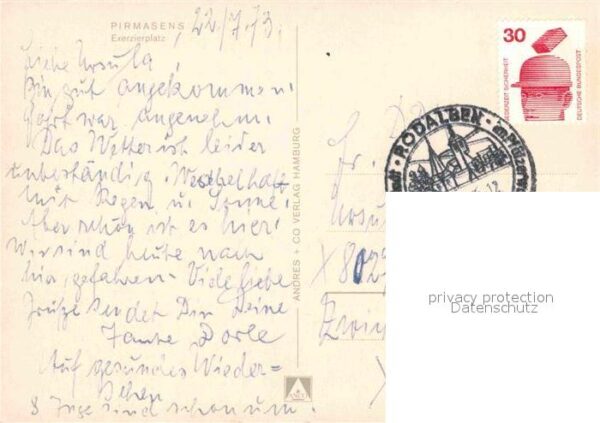 PIRMASENS
Exerzierplatz
22/7.73.
Liebe Ursula,
Bin gut angekommen.
Fahrt war angenehm.
Das Wetter ist leider
unbeständig. Wechselhaft
mit Regen u. Sonne.
Aber schön ist es hier.
Wir sind heute nach
hier gefahren. Viele liebe
Grüße sendet Dir Deine
Tante Dorle
Auf gesundes Wieder=
sehen
8 Tage sind schon um.
ANDRES + CO VERLAG HAMBURG
30
JEDERZEIT SICHERHEIT
DEUTSCHE BUNDESPOST
RODALBEN
im Pfälzer
Fr.
Ursu
X 802
Zwi
privacy protection
Datenschutz